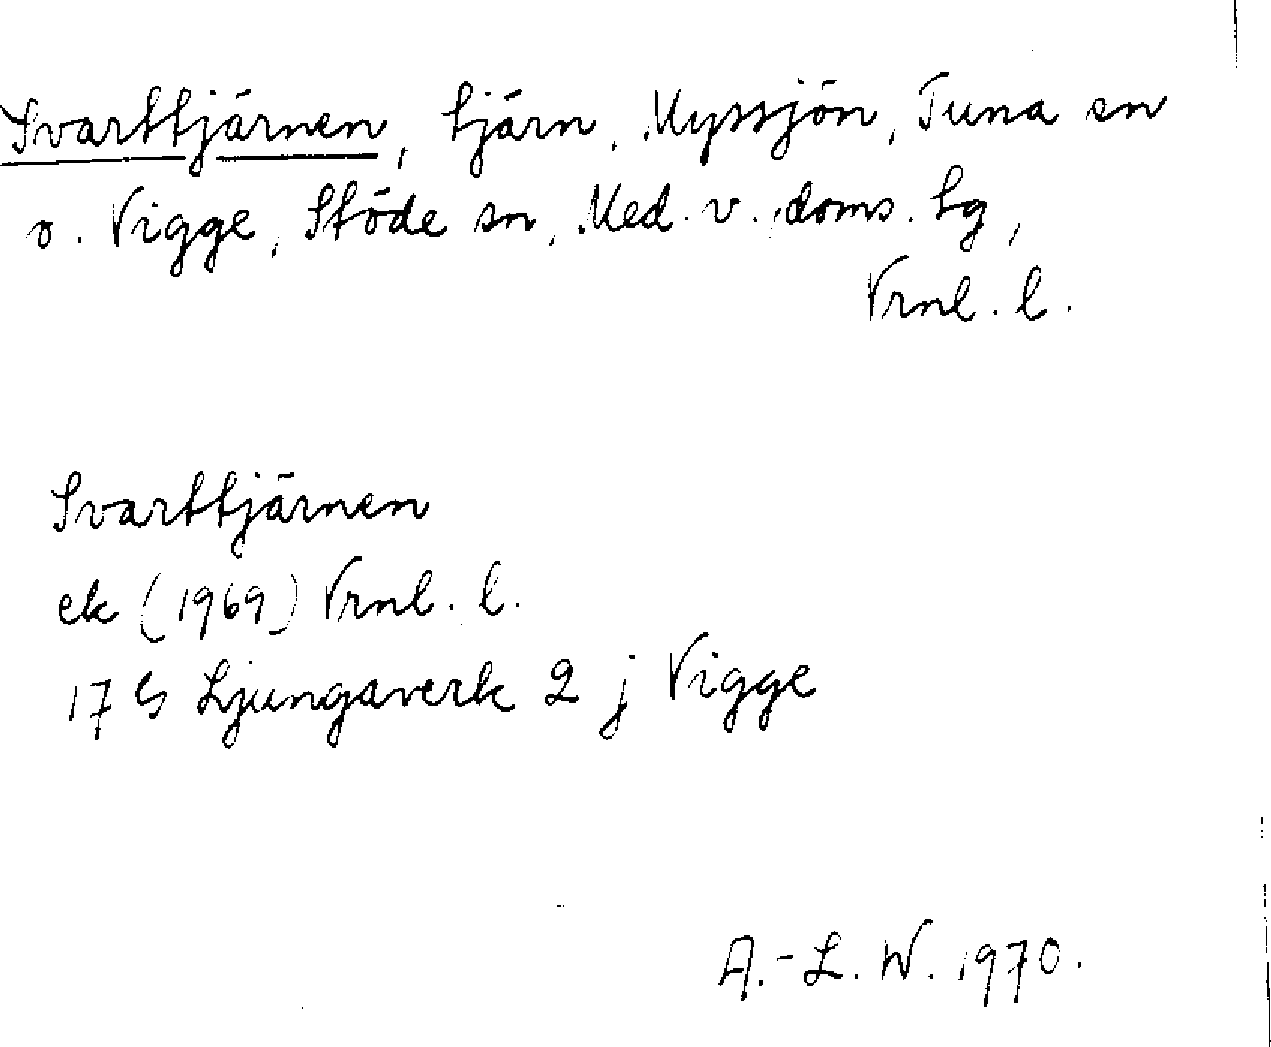 Svarttjärnen, tjärn, Myssjön, Tuna sn
o. Vigge, Stöde sn, Med. v. doms. tg,
Vrnl. l.
Svarttjärnen
ek (1969) Vrnl. l.
17 G Ljungaverk 2 j Vigge
A.-L. W. 1970.